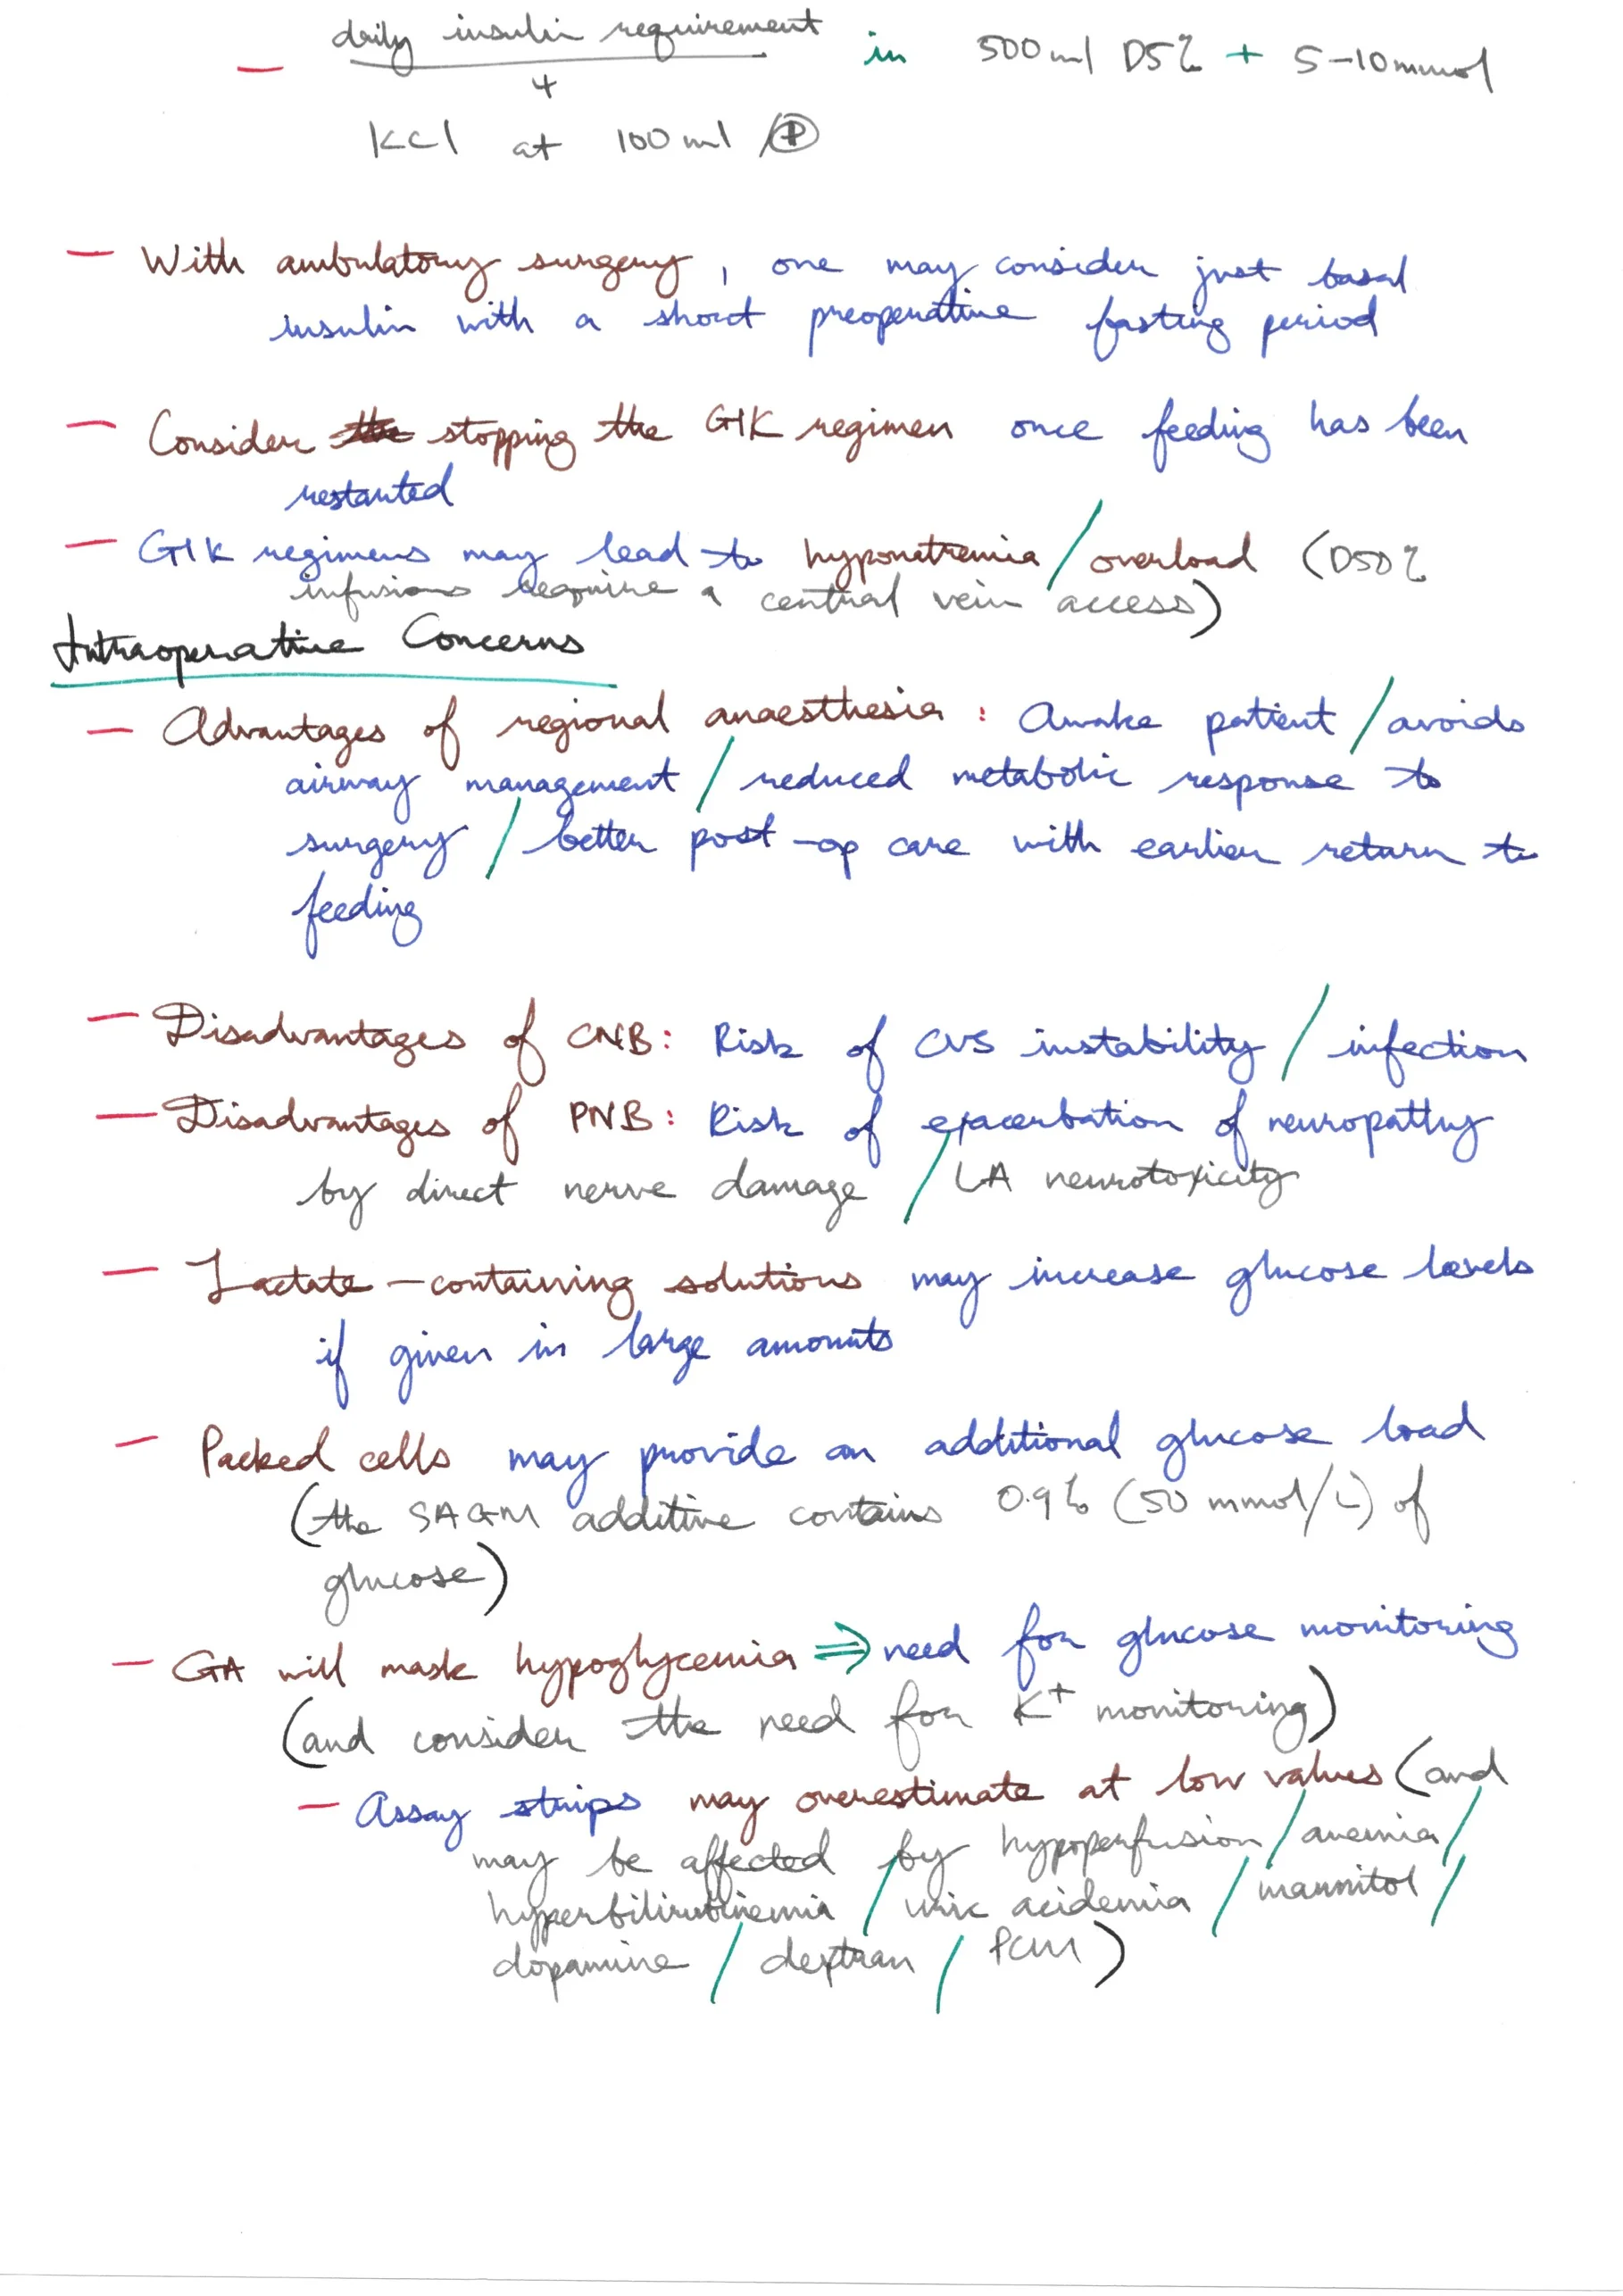 — daily insulin requirement / 4 in 500ml D5% + 5-10mmol
KCl at 100ml /Ⓗ
— With ambulatory surgery, one may consider just basal
insulin with a short preoperative fasting period
— Consider stopping the GIK regimen once feeding has been
restarted
— GIK regimens may lead to hyponatremia / overload (D50%
infusions require a central vein access)
Intraoperative Concerns
— Advantages of regional anaesthesia : Awake patient / avoids
airway management / reduced metabolic response to
surgery / better post-op care with earlier return to
feeding
— Disadvantages of CNB: Risk of CVS instability / infection
— Disadvantages of PNB: Risk of exacerbation of neuropathy
by direct nerve damage / LA neurotoxicity
— Lactate-containing solutions may increase glucose levels
if given in large amounts
— Packed cells may provide an additional glucose load
(the SAGM additive contains 0.9% (50 mmol/L) of
glucose)
— GA will mask hypoglycemia ⇒ need for glucose monitoring
(and consider the need for K⁺ monitoring)
— Assay strips may overestimate at low values (and
may be affected by hypoperfusion / anemia /
hyperbilirubinemia / uric acidemia / mannitol /
dopamine / dextran / PCM)